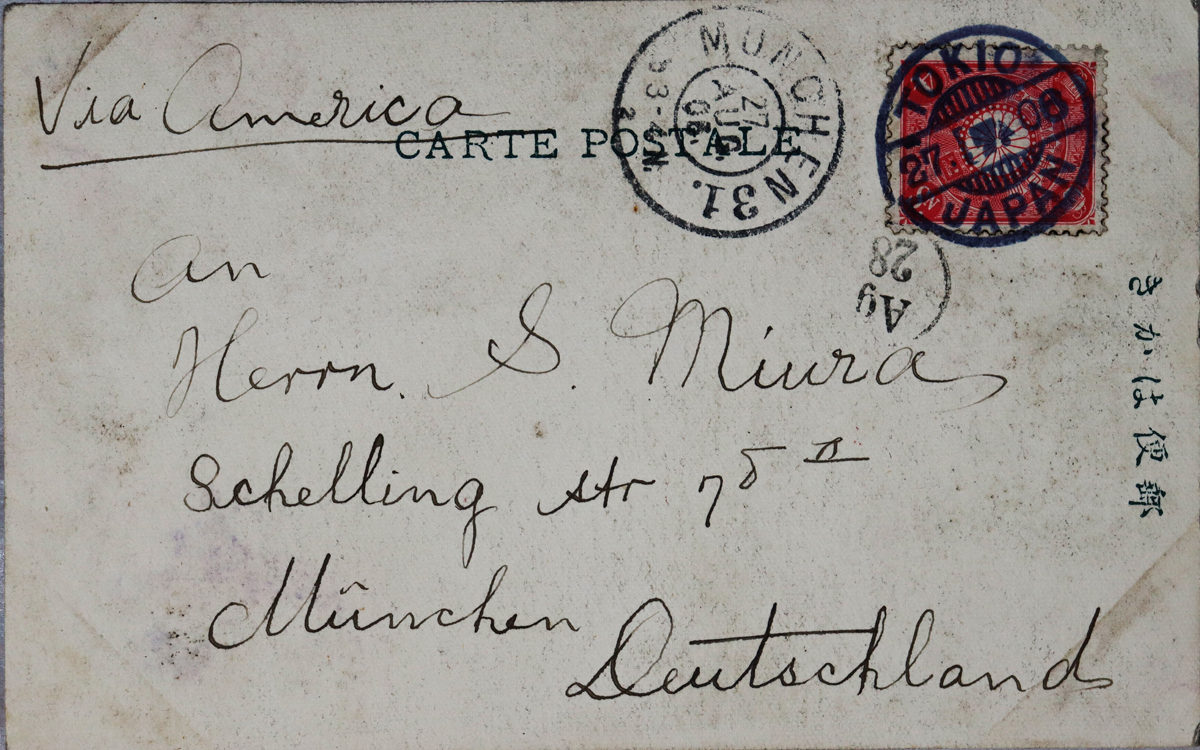 Via America
CARTE POSTALE
MÜNCHEN 31.
27
AUG.
TOKIO
27.
06
JAPAN
Ag
28
きかは便郵
An
Herrn. S. Miura
Schelling str 75 II
München
Deutschland